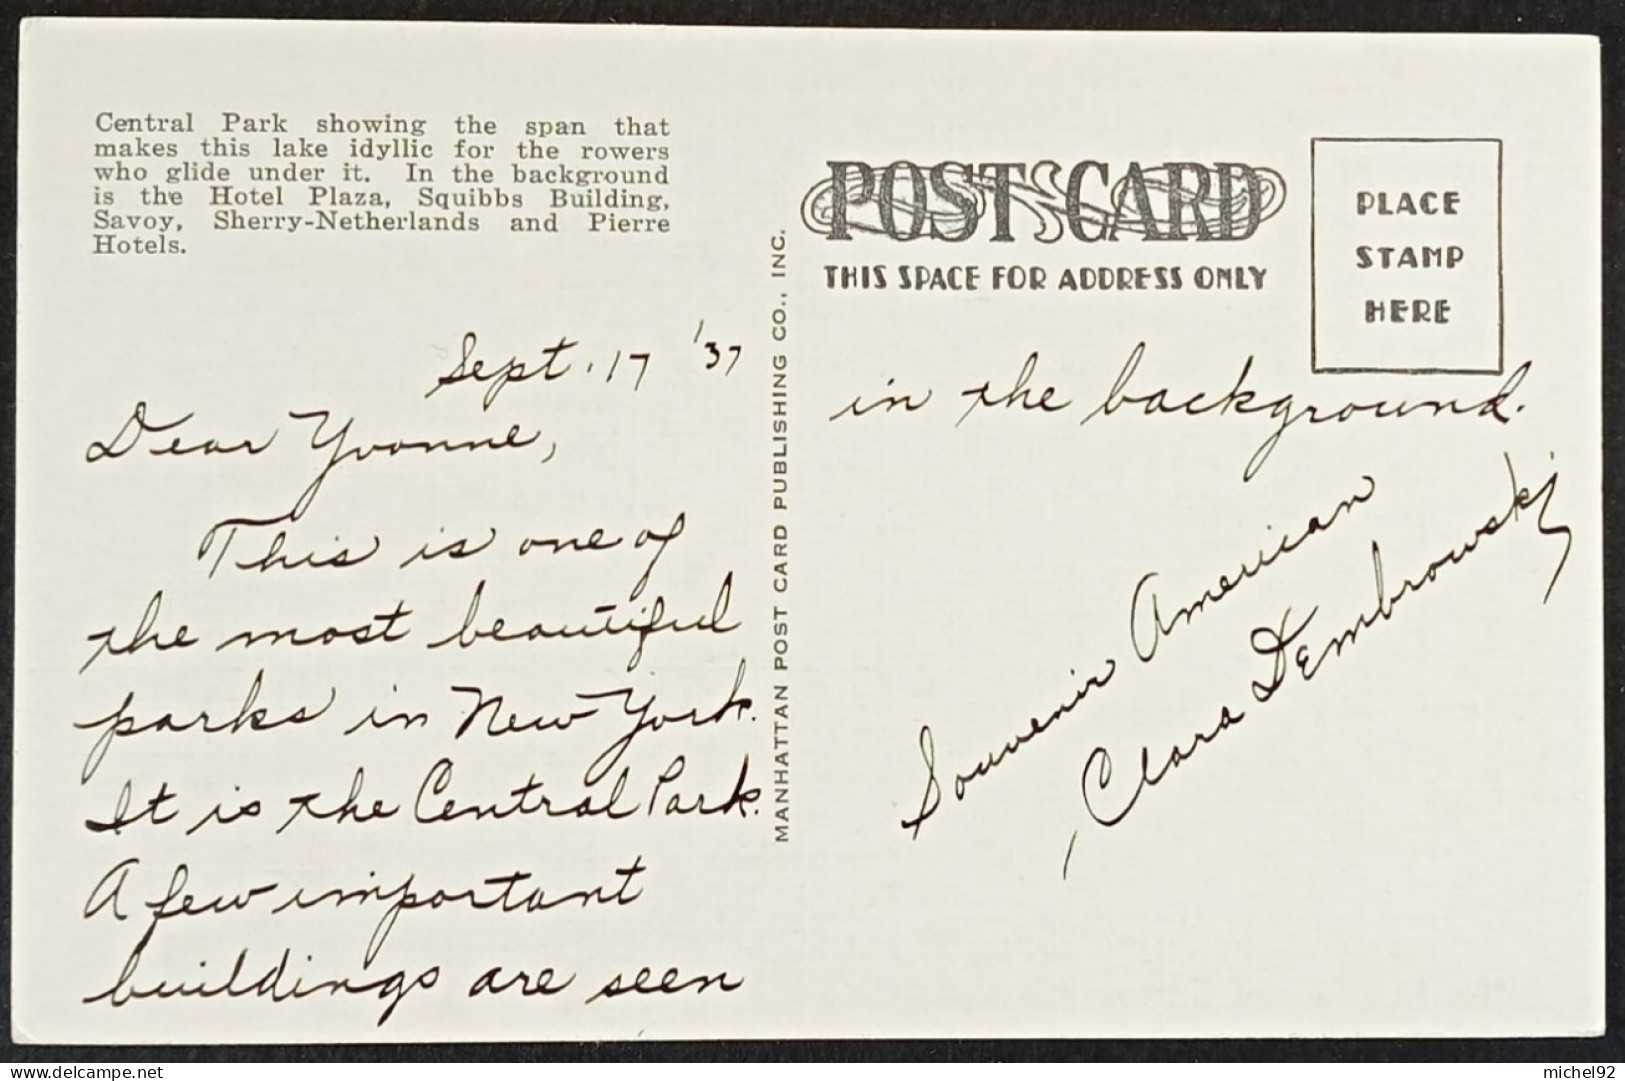 Central Park showing the span that
makes this lake idyllic for the rowers
who glide under it. In the background
is the Hotel Plaza, Squibbs Building,
Savoy, Sherry-Netherlands and Pierre
Hotels.
Sept. 17 '37
Dear Yvonne,
This is one of
the most beautiful
parks in New York.
It is the Central Park.
A few important
buildings are seen
MANHATTAN POST CARD PUBLISHING CO., INC.
POST CARD
THIS SPACE FOR ADDRESS ONLY
PLACE
STAMP
HERE
in the background.
Souvenir American
Clara Dembrowski
delcampe.net
michel92